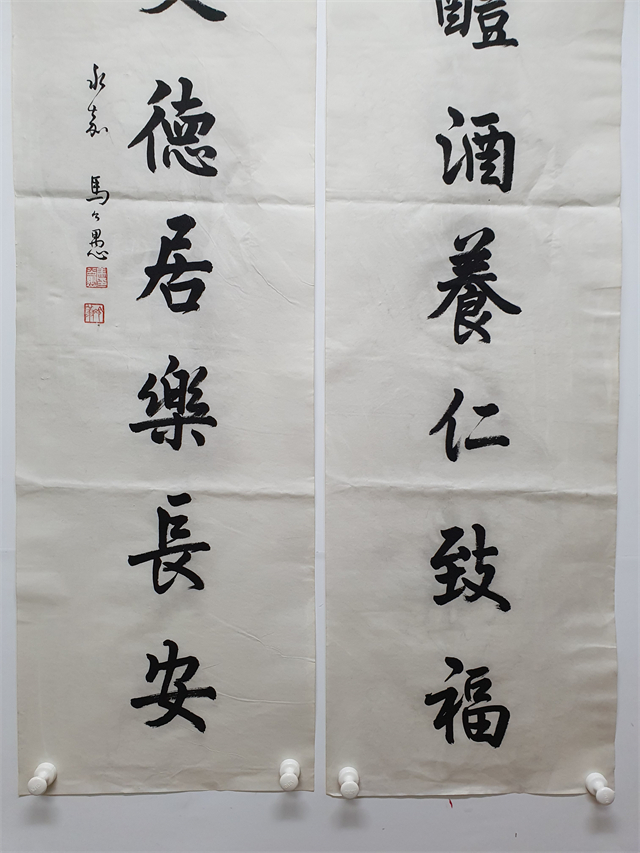 醴酒養仁致福
德居樂長安
永嘉 馬公愚